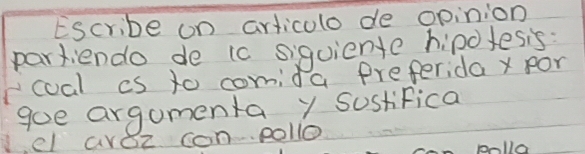 Escribe un articulo de opinion
partiendo de la siguiente hipotesis:
cual es to comida preferida y por
que argumenta y sustifica
el aroz con pollo
con pollo